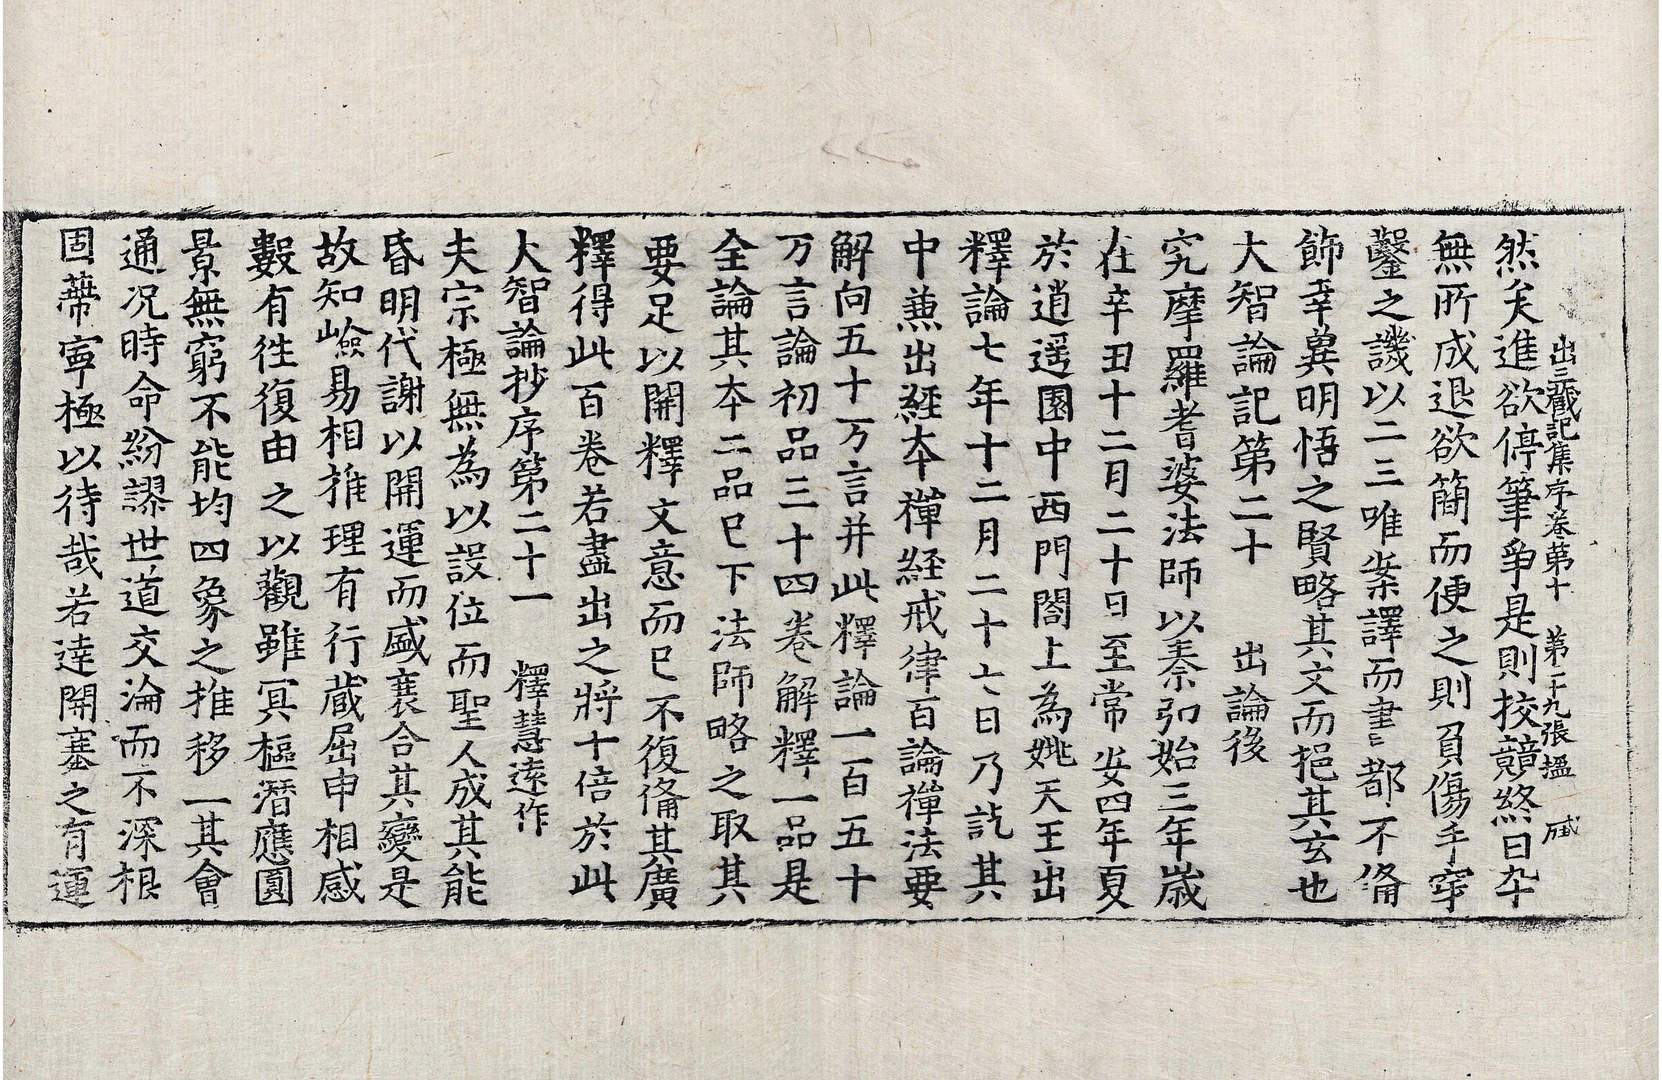 出三藏記集序卷第十 第二十九張 搵
然矣進欲停筆爭是則挍競終日卒
無所成退欲簡而便之則負傷手穿
鑿之譏以二三唯案譯而書都不俻
飾幸冀明悟之賢略其文而挹其玄也
大智論記第二十 出論後
究摩羅耆婆法師以秦弘始三年歲
在辛丑十二月二十日至常安四年夏
於逍遥園中西門閤上為姚天王出
釋論七年十二月二十七日乃訖其
中兼出経本禪経戒律百論禪法要
解向五十万言并此釋論一百五十
万言論初品三十四卷解釋一品是
全論其本二品已下法師略之取其
要足以開釋文意而已不復俻其廣
釋得此百卷若盡出之將十倍於此
大智論抄序第二十一 釋慧遠作
夫宗極無為以設位而聖人成其能
昏明代謝以開運而盛衰合其變是
故知嶮易相推理有行藏屈申相感
數有徃復由之以觀雖冥樞潛應圓
景無窮不能均四象之推移一其會
通况時命紛謬世道交淪而不深根
固蔕寧極以待哉若達開塞之有運